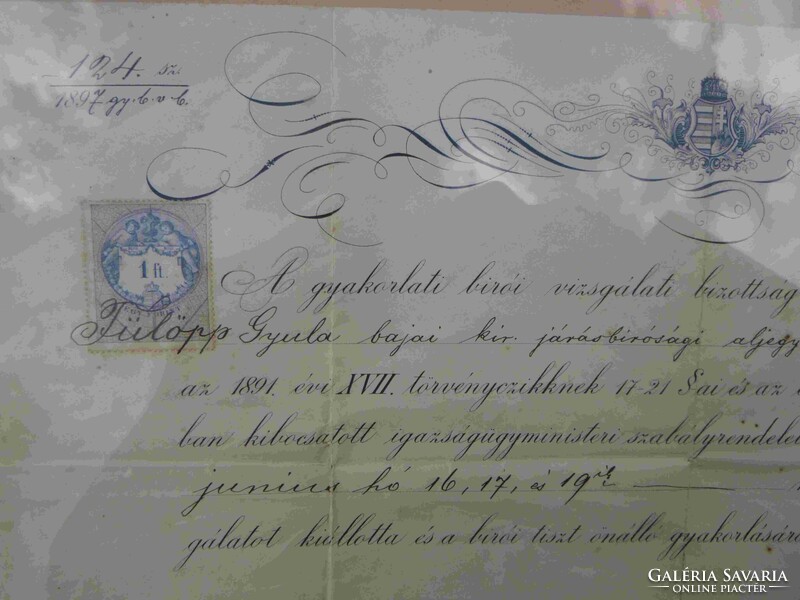 124. sz.
1897 gy. b. v. b.
1 ft.
A gyakorlati birói vizsgálati bizottság
Fülöpp Gyula bajai kir. járásbirósági aljegy
az 1891. évi XVII. törvényczikknek 17-21 §ai és az
ban kibocsátott igazságügyministeri szabályrendele
junius hó 16, 17, és 19ik
gálatot kiállotta és a birói tiszt önálló gyakorlásár
GALÉRIA SAVARIA
ONLINE PIACTÉR